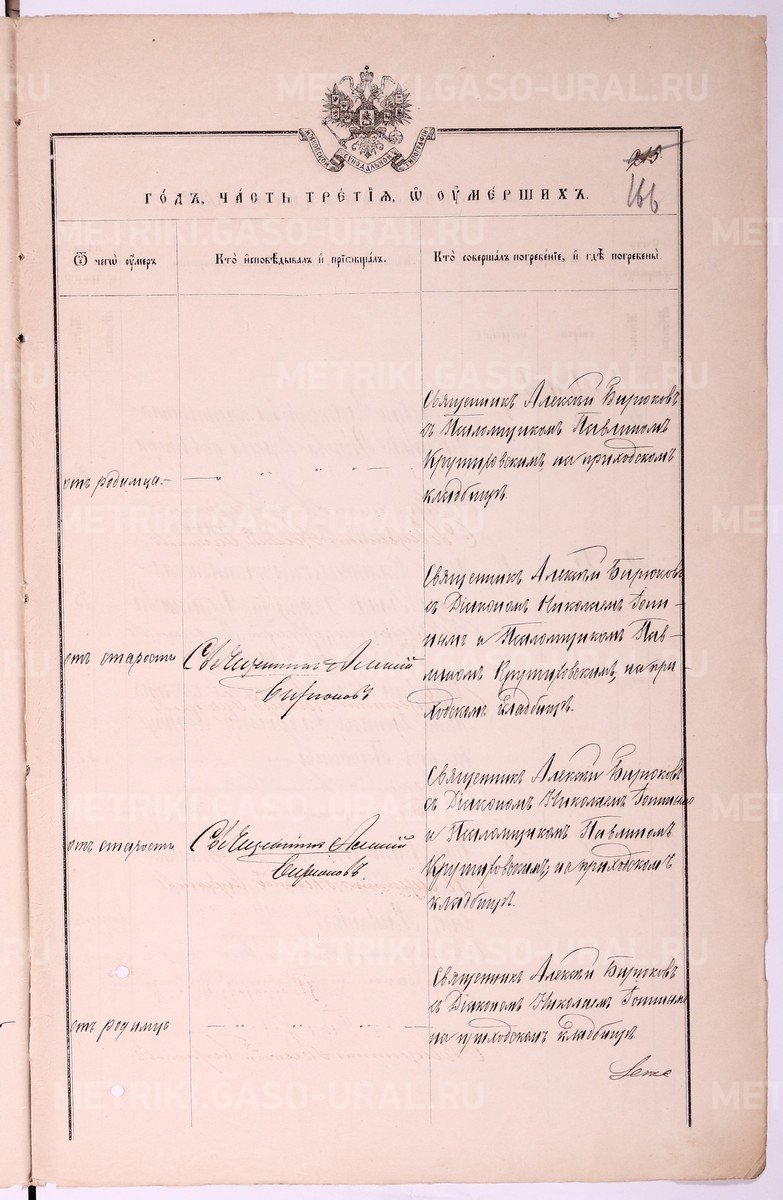 METRIKI.GASO-URAL.RU
МОСКОВСКОЙ СѴНОДАЛЬНОЙ ТИПОГРАФІИ
215
166
ГОДЪ, ЧАСТЬ ТРЕТІЯ, Ѡ ОУМЕРШИХЪ.
Ѿ чегѡ оумеръ
Кто исповѣдывалъ и пріобщалъ.
Кто совершалъ погребеніе, и гдѣ погребены.
отъ родимца.
— „ „ „ — „
Священникъ Алексѣй Бирюковъ
съ Псаломщикомъ Павлиномъ
Крутиховскимъ, на приходскомъ
кладбищѣ.
отъ старости
Священникъ Алексѣй
Бирюковъ
Священникъ Алексѣй Бирюковъ
съ Діакономъ Николаемъ
и Псаломщикомъ Пав-
линомъ Крутиховскимъ, на при-
ходскомъ кладбищѣ.
отъ старости
Священникъ Алексѣй
Бирюковъ.
Священникъ Алексѣй Бирюковъ
съ Діакономъ Николаемъ
и Псаломщикомъ Павлиномъ
Крутиховскимъ, на приходскомъ
кладбищѣ.
отъ родимца
— „ — „ „ — „ —
Священникъ Алексѣй Бирюковъ
съ Діакономъ Николаемъ
на приходскомъ кладбищѣ.